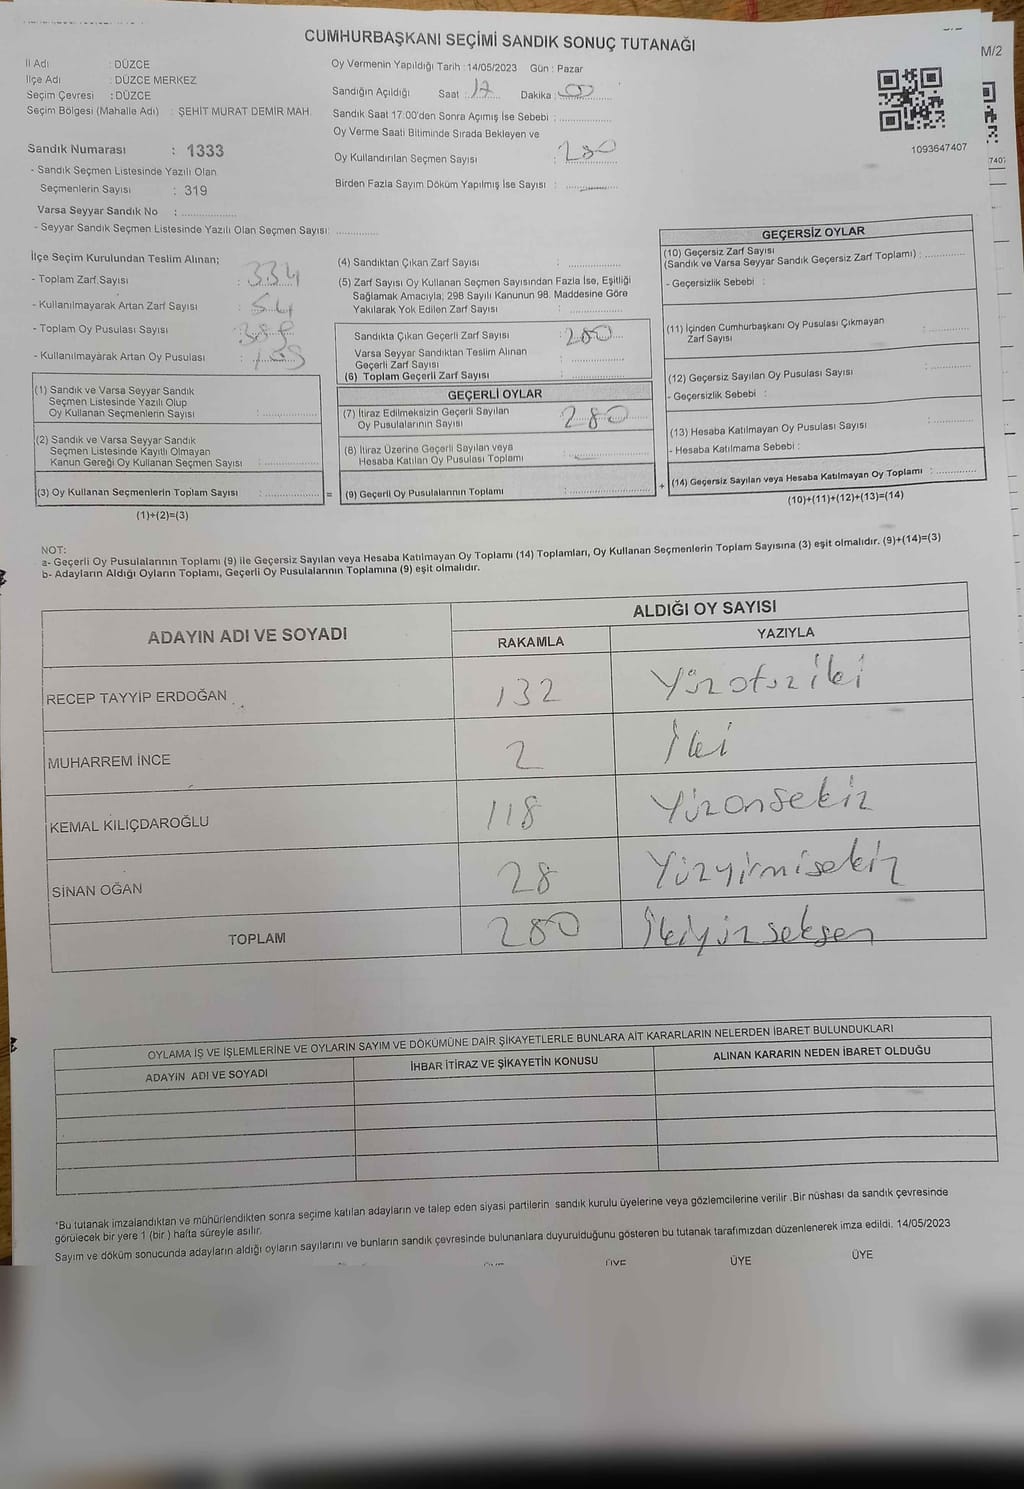 CUMHURBAŞKANI SEÇİMİ SANDIK SONUÇ TUTANAĞI
M/2
İl Adı : DÜZCE
İlçe Adı : DÜZCE MERKEZ
Seçim Çevresi : DÜZCE
Seçim Bölgesi (Mahalle Adı) : ŞEHİT MURAT DEMİR MAH.
Oy Vermenin Yapıldığı Tarih :14/05/2023 Gün : Pazar
Sandığın Açıldığı Saat : 17 Dakika : 00
Sandık Saat 17:00'den Sonra Açımış İse Sebebi :
Oy Verme Saati Bitiminde Sırada Bekleyen ve
Oy Kullandırılan Seçmen Sayısı : 280
Birden Fazla Sayım Döküm Yapılmış İse Sayısı :
1093647407
7407
Sandık Numarası : 1333
- Sandık Seçmen Listesinde Yazılı Olan
Seçmenlerin Sayısı : 319
Varsa Seyyar Sandık No :
- Seyyar Sandık Seçmen Listesinde Yazılı Olan Seçmen Sayısı:
İlçe Seçim Kurulundan Teslim Alınan;
- Toplam Zarf Sayısı : 334
- Kullanılmayarak Artan Zarf Sayısı : 54
- Toplam Oy Pusulası Sayısı
- Kullanılmayarak Artan Oy Pusulası :
(1) Sandık ve Varsa Seyyar Sandık
Seçmen Listesinde Yazılı Olup
Oy Kullanan Seçmenlerin Sayısı :
(2) Sandık ve Varsa Seyyar Sandık
Seçmen Listesinde Kayıtlı Olmayan
Kanun Gereği Oy Kullanan Seçmen Sayısı :
(3) Oy Kullanan Seçmenlerin Toplam Sayısı :
(1)+(2)=(3)
=
(4) Sandıktan Çıkan Zarf Sayısı :
(5) Zarf Sayısı Oy Kullanan Seçmen Sayısından Fazla İse, Eşitliği
Sağlamak Amacıyla; 298 Sayılı Kanunun 98. Maddesine Göre
Yakılarak Yok Edilen Zarf Sayısı :
Sandıkta Çıkan Geçerli Zarf Sayısı : 280
Varsa Seyyar Sandıktan Teslim Alınan
Geçerli Zarf Sayısı :
(6) Toplam Geçerli Zarf Sayısı :
GEÇERLİ OYLAR
(7) İtiraz Edilmeksizin Geçerli Sayılan
Oy Pusulalarının Sayısı : 280
(8) İtiraz Üzerine Geçerli Sayılan veya
Hesaba Katılan Oy Pusulası Toplamı :
(9) Geçerli Oy Pusulalarının Toplamı :
+
GEÇERSİZ OYLAR
(10) Geçersiz Zarf Sayısı
(Sandık ve Varsa Seyyar Sandık Geçersiz Zarf Toplamı) :
- Geçersizlik Sebebi :
(11) İçinden Cumhurbaşkanı Oy Pusulası Çıkmayan
Zarf Sayısı :
(12) Geçersiz Sayılan Oy Pusulası Sayısı :
- Geçersizlik Sebebi :
(13) Hesaba Katılmayan Oy Pusulası Sayısı :
- Hesaba Katılmama Sebebi :
(14) Geçersiz Sayılan veya Hesaba Katılmayan Oy Toplamı :
(10)+(11)+(12)+(13)=(14)
NOT:
a- Geçerli Oy Pusulalarının Toplamı (9) ile Geçersiz Sayılan veya Hesaba Katılmayan Oy Toplamı (14) Toplamları, Oy Kullanan Seçmenlerin Toplam Sayısına (3) eşit olmalıdır. (9)+(14)=(3)
b- Adayların Aldığı Oyların Toplamı, Geçerli Oy Pusulalarının Toplamına (9) eşit olmalıdır.
ADAYIN ADI VE SOYADI
ALDIĞI OY SAYISI
RAKAMLA YAZIYLA
RECEP TAYYİP ERDOĞAN 132 Yüzotuziki
MUHARREM İNCE 2 İki
KEMAL KILIÇDAROĞLU 118 Yüzonsekiz
SİNAN OĞAN 28 Yüzyirmisekiz
TOPLAM 280 İkiyüzseksen
OYLAMA İŞ VE İŞLEMLERİNE VE OYLARIN SAYIM VE DÖKÜMÜNE DAİR ŞİKAYETLERLE BUNLARA AİT KARARLARIN NELERDEN İBARET BULUNDUKLARI
ADAYIN ADI VE SOYADI İHBAR İTİRAZ VE ŞİKAYETİN KONUSU ALINAN KARARIN NEDEN İBARET OLDUĞU
*Bu tutanak imzalandıktan ve mühürlendikten sonra seçime katılan adayların ve talep eden siyasi partilerin sandık kurulu üyelerine veya gözlemcilerine verilir .Bir nüshası da sandık çevresinde
görülecek bir yere 1 (bir ) hafta süreyle asılır.
Sayım ve döküm sonucunda adayların aldığı oyların sayılarını ve bunların sandık çevresinde bulunanlara duyurulduğunu gösteren bu tutanak tarafımızdan düzenlenerek imza edildi. 14/05/2023
ÜYE ÜYE